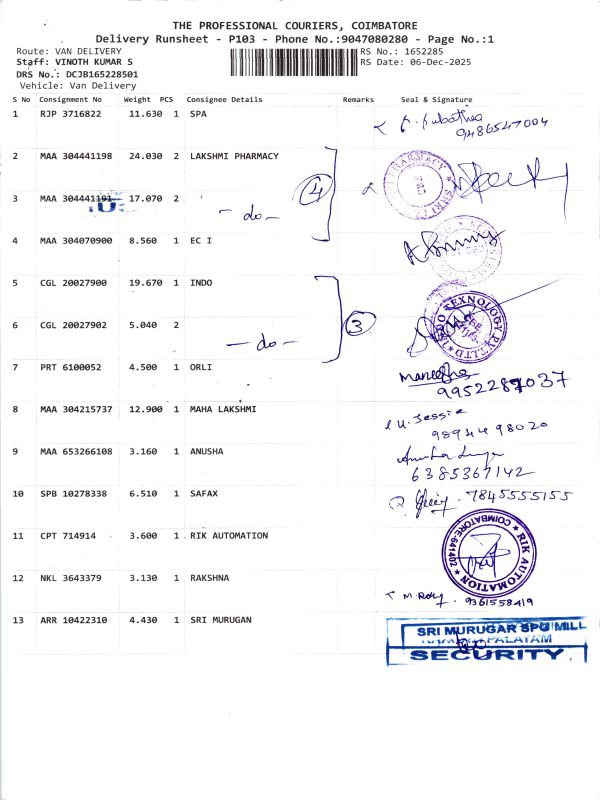 THE PROFESSIONAL COURIERS, COIMBATORE
Delivery Runsheet - P103 - Phone No.:9047080280 - Page No.:1
Route: VAN DELIVERY
RS No.: 1652285
Staff: VINOTH KUMAR S
RS Date: 06-Dec-2025
DRS No.: DCJB165228501
Vehicle: Van Delivery
S No Consignment No Weight PCS Consignee Details Remarks Seal & Signature
1 RJP 3716822 11.630 1 SPA
9486547004
2 MAA 304441198 24.030 2 LAKSHMI PHARMACY
PHARMACY
4
3 MAA 304441191 17.070 2
- do -
4 MAA 304070900 8.560 1 EC I
5 CGL 20027900 19.670 1 INDO
INDO TEXNOLOGY PVT LTD
3
6 CGL 20027902 5.040 2
- do -
7 PRT 6100052 4.500 1 ORLI
9952287037
8 MAA 304215737 12.900 1 MAHA LAKSHMI
Jessie
9894498020
9 MAA 653266108 3.160 1 ANUSHA
6385367142
10 SPB 10278338 6.510 1 SAFAX
7845555155
11 CPT 714914 3.600 1 RIK AUTOMATION
RIK AUTOMATION
COIMBATORE-641402
12 NKL 3643379 3.130 1 RAKSHNA
9361558419
13 ARR 10422310 4.430 1 SRI MURUGAN
SRI MURUGAR SPG MILL
PALAYAM
SECURITY